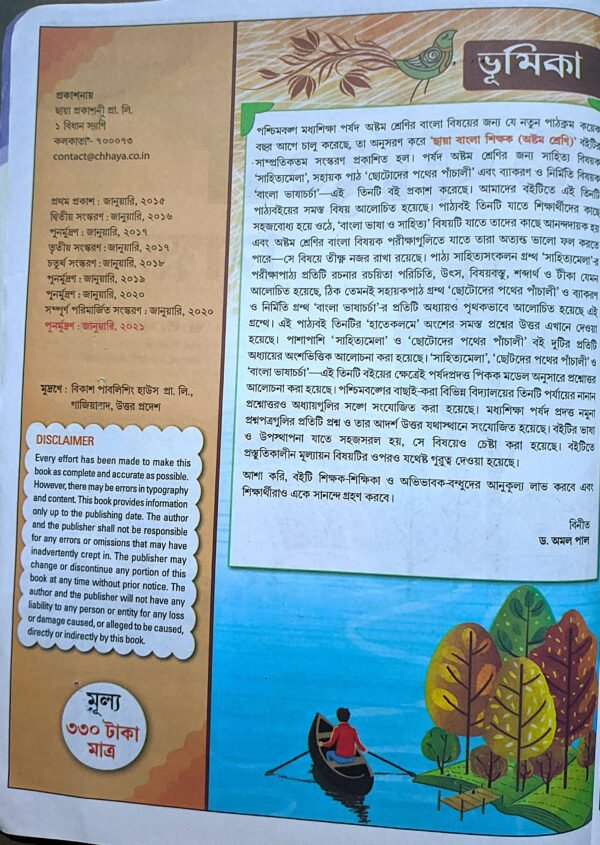 প্রকাশনায়
ছায়া প্রকাশনী প্রা. লি.
১ বিধান সরণি
কলকাতা- ৭০০০৭৩
contact@chhaya.co.in
প্রথম প্রকাশ : জানুয়ারি, ২০১৫
দ্বিতীয় সংস্করণ : জানুয়ারি, ২০১৬
পুনর্মুদ্রণ : জানুয়ারি, ২০১৭
তৃতীয় সংস্করণ : জানুয়ারি, ২০১৭
চতুর্থ সংস্করণ : জানুয়ারি, ২০১৮
পুনর্মুদ্রণ : জানুয়ারি, ২০১৯
পুনর্মুদ্রণ : জানুয়ারি, ২০২০
সম্পূর্ণ পরিমার্জিত সংস্করণ : জানুয়ারি, ২০২০
পুনর্মুদ্রণ : জানুয়ারি, ২০২১
মুদ্রণে : বিকাশ পাবলিশিং হাউস প্রা. লি.,
গাজিয়াবাদ, উত্তর প্রদেশ
DISCLAIMER
Every effort has been made to make this
book as complete and accurate as possible.
However, there may be errors in typography
and content. This book provides information
only up to the publishing date. The author
and the publisher shall not be responsible
for any errors or omissions that may have
inadvertently crept in. The publisher may
change or discontinue any portion of this
book at any time without prior notice. The
author and the publisher will not have any
liability to any person or entity for any loss
or damage caused, or alleged to be caused,
directly or indirectly by this book.
মূল্য
৩৩০ টাকা
মাত্র
ভূমিকা
পশ্চিমবঙ্গ মধ্যশিক্ষা পর্ষদ অষ্টম শ্রেণির বাংলা বিষয়ের জন্য যে নতুন পাঠক্রম কয়েক
বছর আগে চালু করেছে, তা অনুসরণ করে 'ছায়া বাংলা শিক্ষক (অষ্টম শ্রেণি)' বইটির
সাম্প্রতিকতম সংস্করণ প্রকাশিত হল। পর্ষদ অষ্টম শ্রেণির জন্য সাহিত্য বিষয়ক
'সাহিত্যমেলা', সহায়ক পাঠ 'ছোটোদের পথের পাঁচালী' এবং ব্যাকরণ ও নির্মিতি বিষয়ক
'বাংলা ভাষাচর্চা'—এই তিনটি বই প্রকাশ করেছে। আমাদের বইটিতে এই তিনটি
পাঠ্যবইয়ের সমস্ত বিষয় আলোচিত হয়েছে। পাঠ্যবই তিনটি যাতে শিক্ষার্থীদের কাছে
সহজবোধ্য হয়ে ওঠে, 'বাংলা ভাষা ও সাহিত্য' বিষয়টি যাতে তাদের কাছে আনন্দদায়ক হয়
এবং অষ্টম শ্রেণির বাংলা বিষয়ক পরীক্ষাগুলিতে যাতে তারা অত্যন্ত ভালো ফল করতে
পারে—সে বিষয়ে তীক্ষ্ণ নজর রাখা রয়েছে। পাঠ্য সাহিত্যসংকলন গ্রন্থ 'সাহিত্যমেলা'-র
পরীক্ষাপাঠ্য প্রতিটি রচনার রচয়িতা পরিচিতি, উৎস, বিষয়বস্তু, শব্দার্থ ও টীকা যেমন
আলোচিত হয়েছে, ঠিক তেমনই সহায়কপাঠ গ্রন্থ 'ছোটোদের পথের পাঁচালী' ও ব্যাকরণ
ও নির্মিতি গ্রন্থ 'বাংলা ভাষাচর্চা'-র প্রতিটি অধ্যায়ও পৃথকভাবে আলোচিত হয়েছে এই
গ্রন্থে। এই পাঠ্যবই তিনটির 'হাতেকলমে' অংশের সমস্ত প্রশ্নের উত্তর এখানে দেওয়া
হয়েছে। পাশাপাশি 'সাহিত্যমেলা' ও 'ছোটোদের পথের পাঁচালী' বই দুটির প্রতিটি
অধ্যায়ের অংশভিত্তিক আলোচনা করা হয়েছে। 'সাহিত্যমেলা', 'ছোটদের পথের পাঁচালী' ও
'বাংলা ভাষাচর্চা'—এই তিনটি বইয়ের ক্ষেত্রেই পর্ষদপ্রদত্ত পিকক মডেল অনুসারে প্রশ্নোত্তর
আলোচনা করা হয়েছে। পশ্চিমবঙ্গের বাছাই-করা বিভিন্ন বিদ্যালয়ের তিনটি পর্যায়ের নানান
প্রশ্নোত্তরও অধ্যায়গুলির সঙ্গে সংযোজিত করা হয়েছে। মধ্যশিক্ষা পর্ষদ প্রদত্ত নমুনা
প্রশ্নপত্রগুলির প্রতিটি প্রশ্ন ও তার আদর্শ উত্তর যথাস্থানে সংযোজিত হয়েছে। বইটির ভাষা
ও উপস্থাপনা যাতে সহজসরল হয়, সে বিষয়েও চেষ্টা করা হয়েছে। বইটিতে
প্রস্তুতিকালীন মূল্যায়ন বিষয়টির ওপরও যথেষ্ট গুরুত্ব দেওয়া হয়েছে।
আশা করি, বইটি শিক্ষক-শিক্ষিকা ও অভিভাবক-বন্ধুদের আনুকূল্য লাভ করবে এবং
শিক্ষার্থীরাও একে সানন্দে গ্রহণ করবে।
বিনীত
ড. অমল পাল